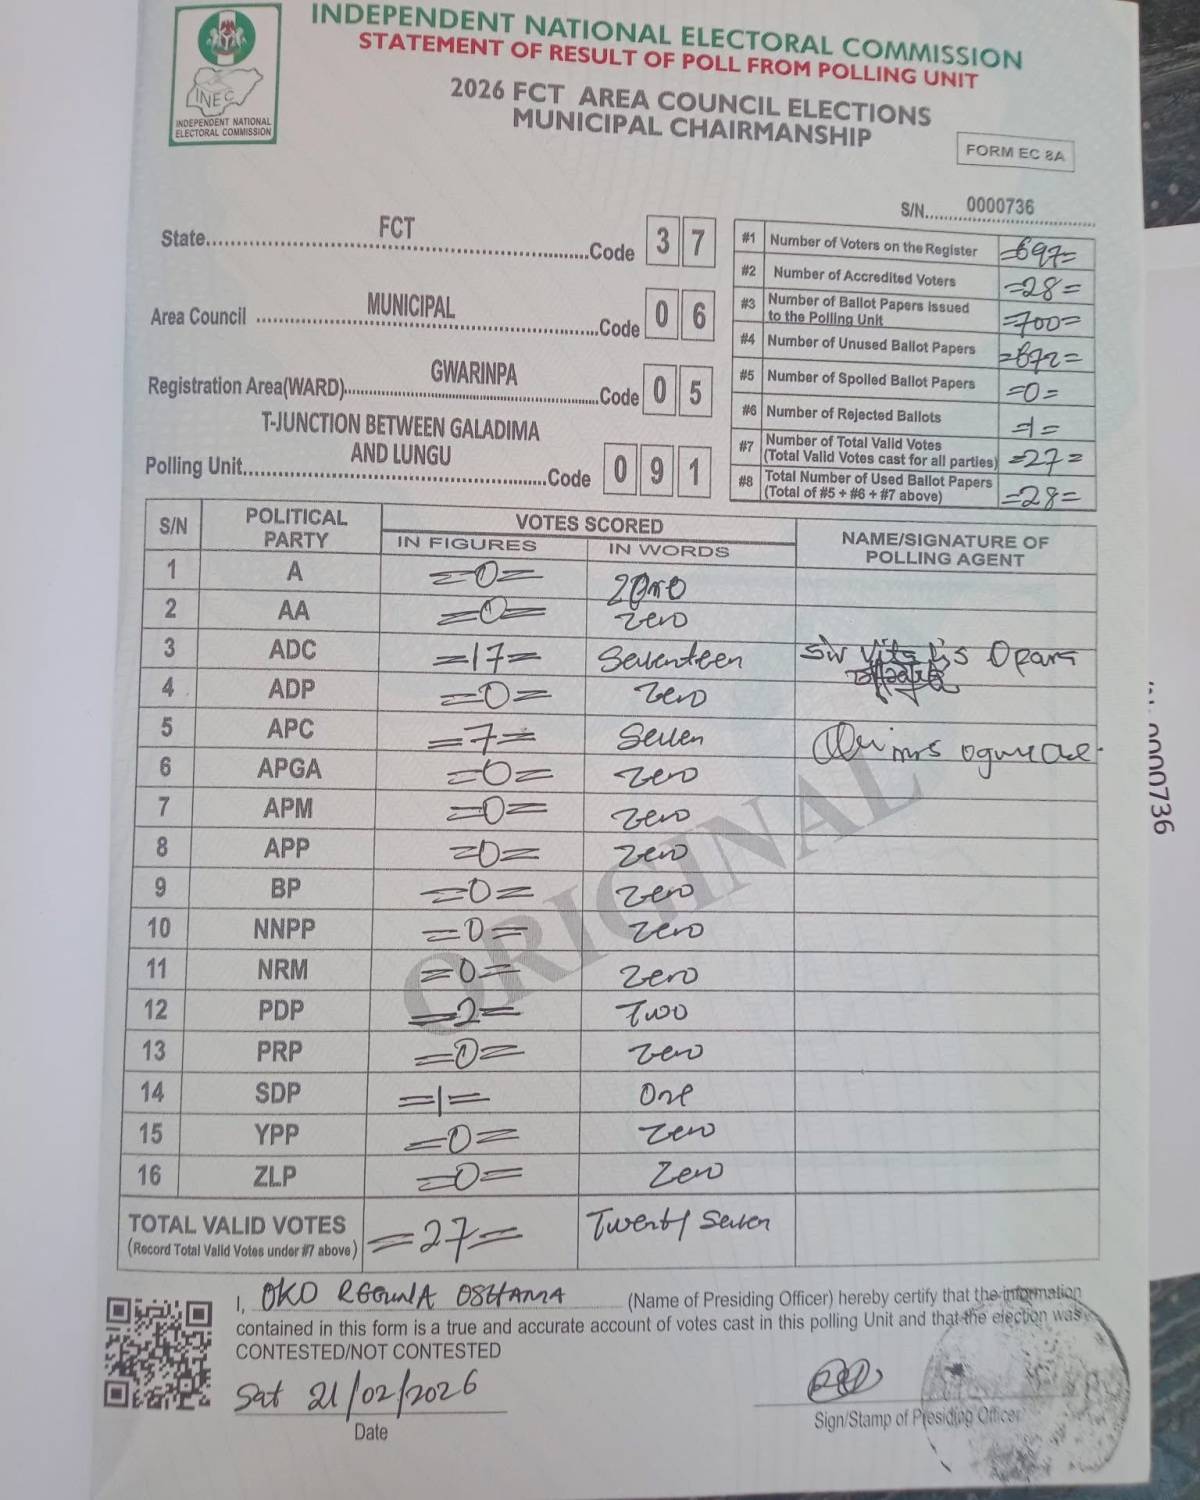 INDEPENDENT NATIONAL ELECTORAL COMMISSION
STATEMENT OF RESULT OF POLL FROM POLLING UNIT
2026 FCT AREA COUNCIL ELECTIONS
MUNICIPAL CHAIRMANSHIP
INEC
INDEPENDENT NATIONAL
ELECTORAL COMMISSION
FORM EC 8A
S/N......0000736
State FCT Code 3 7
Area Council MUNICIPAL Code 0 6
Registration Area(WARD) GWARINPA Code 0 5
T-JUNCTION BETWEEN GALADIMA
AND LUNGU
Polling Unit Code 0 9 1
#1 Number of Voters on the Register =697=
#2 Number of Accredited Voters =28=
#3 Number of Ballot Papers Issued
to the Polling Unit =700=
#4 Number of Unused Ballot Papers =672=
#5 Number of Spoiled Ballot Papers =0=
#6 Number of Rejected Ballots =1=
#7 Number of Total Valid Votes
(Total Valid Votes cast for all parties) =27=
#8 Total Number of Used Ballot Papers
(Total of #5 + #6 + #7 above) =28=
S/N POLITICAL PARTY VOTES SCORED NAME/SIGNATURE OF POLLING AGENT
IN FIGURES IN WORDS
1 A =0= Zero
2 AA =0= Zero
3 ADC =17= Seventeen Sir Vitalis Opara
4 ADP =0= Zero
5 APC =7= Seven
6 APGA =0= Zero
7 APM =0= Zero
8 APP =0= Zero
9 BP =0= Zero
10 NNPP =0= Zero
11 NRM =0= Zero
12 PDP =2= Two
13 PRP =0= Zero
14 SDP =1= One
15 YPP =0= Zero
16 ZLP =0= Zero
TOTAL VALID VOTES =27= Twenty Seven
(Record Total Valid Votes under #7 above)
ORIGINAL
I, OKO REGUNLA OSHAMA (Name of Presiding Officer) hereby certify that the information
contained in this form is a true and accurate account of votes cast in this polling Unit and that the election was
CONTESTED/NOT CONTESTED
Sat 21/02/2026
Date
Sign/Stamp of Presiding Officer
0000736